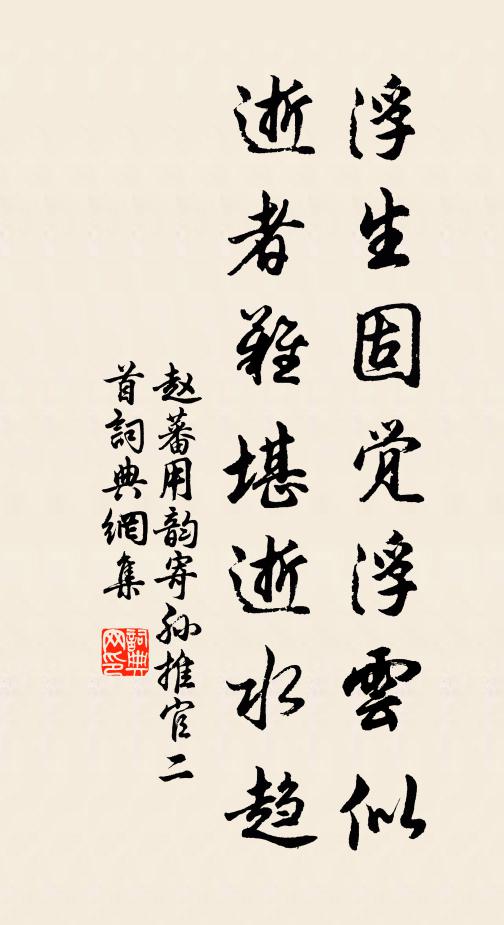 浮生固觉浮雲似
逝者難堪逝水趋
赵蕃用韵寄孙推官二
首詞典網集
詞典網印